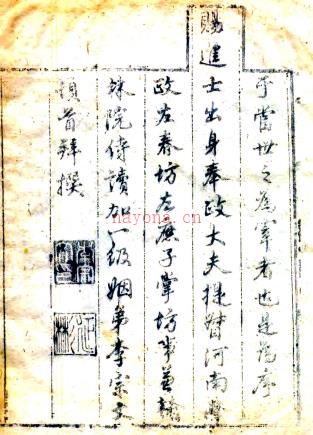 于當世之為宰者也是為序
賜進士出身奉政大夫提督河南學
政左春坊左庶子掌坊事兼翰
林院侍讀加一級姻弟李宗文
頓首拜撰
nayona.cn